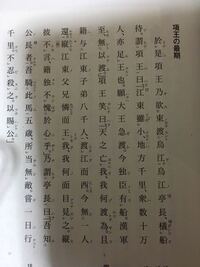 項王の最期
於是項王乃欲東渡烏江。烏江亭長檥船
待。謂項王曰、「江東雖小、地方千里、衆数十万
人、亦足王也。願大王急渡。今独臣有船。漢軍
至、無以渡。」項王笑曰、「天之亡我、我何渡為。且
籍与江東子弟八千人、渡江而西、今無一人
還。縦江東父兄憐而王我、我何面目見之。縦
彼不言、籍独不愧於心乎。」乃謂亭長曰、「吾知
公長者。吾騎此馬五歳、所当無敵。嘗一日行
千里。不忍殺之。以賜公。」